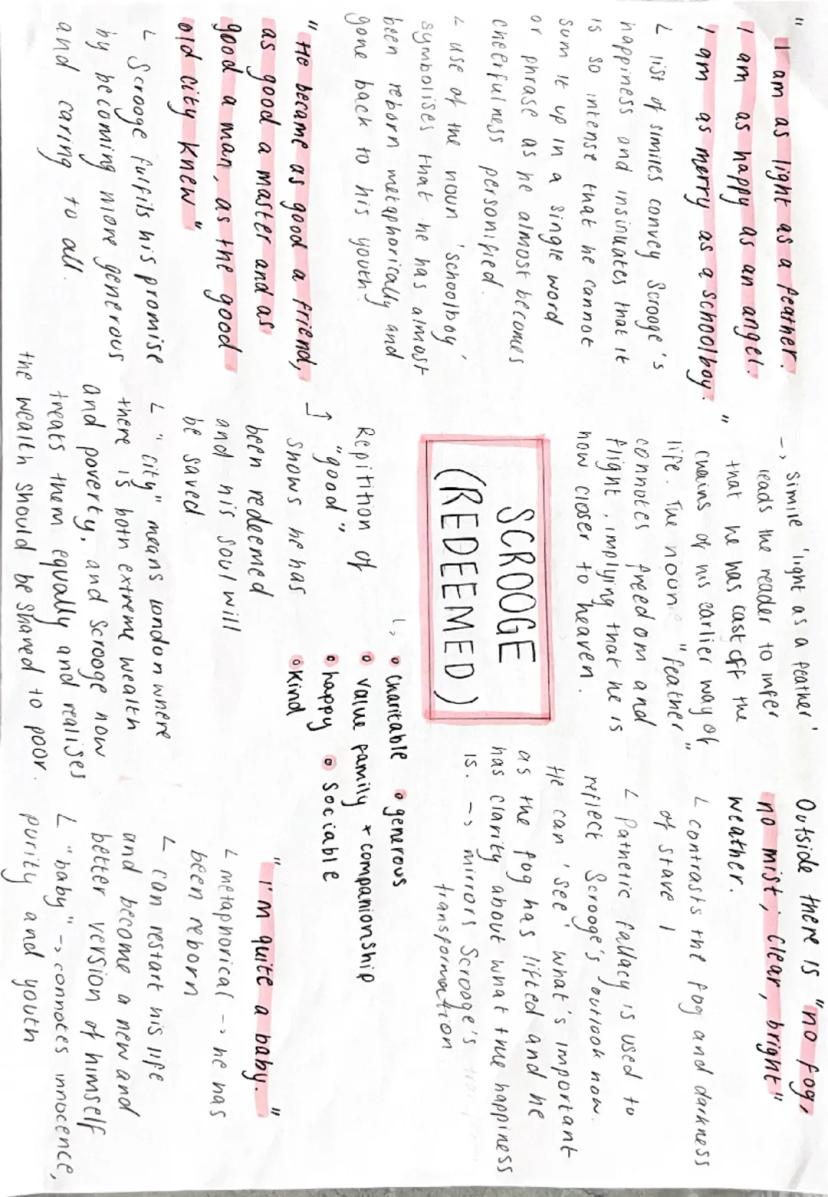 " I am as light as a feather.
I am as happy as an angel.
I am as merry as a schoolboy. "
↳ list of similes convey Scrooge's
happiness and insinuates that it
is so intense that he cannot
sum it up in a single word
or phrase as he almost becomes
cheerfulness personified.
↳ use of the noun 'schoolboy'
symbolises that he has almost
been reborn metaphorically and
gone back to his youth.
-> simile 'light as a feather'
leads the reader to infer
that he has cast off the
chains of his earlier way of
life. The noun "feather"
connotes freedom and
flight, implying that he is
now closer to heaven.
Outside there is "no fog,
no mist; clear, bright"
weather.
↳ contrasts the fog and darkness
of stave 1
↳ Pathetic fallacy is used to
reflect Scrooge's outlook now.
He can 'see' what's important
as the fog has lifted and he
has clarity about what true happiness
is. -> mirrors Scrooge's
transformation.
SCROOGE
(REDEEMED)
↳ • charitable • generous
• value family + companionship
• happy • sociable
• kind
"He became as good a friend,
as good a master and as
good a man, as the good
old city knew"
↳ Scrooge fulfils his promise
by becoming more generous
and caring to all.
Repitition of
"good"
↑ shows he has
been redeemed
and his soul will
be saved.
↳ "city" means London where
there is both extreme wealth
and poverty, and Scrooge now
treats them equally and realises
the wealth should be shared to poor.
"I'm quite a baby."
↳ metaphorical -> he has
been reborn
↳ can restart his life
and become a new and
better version of himself
↳ "baby" -> connotes innocence,
purity and youth